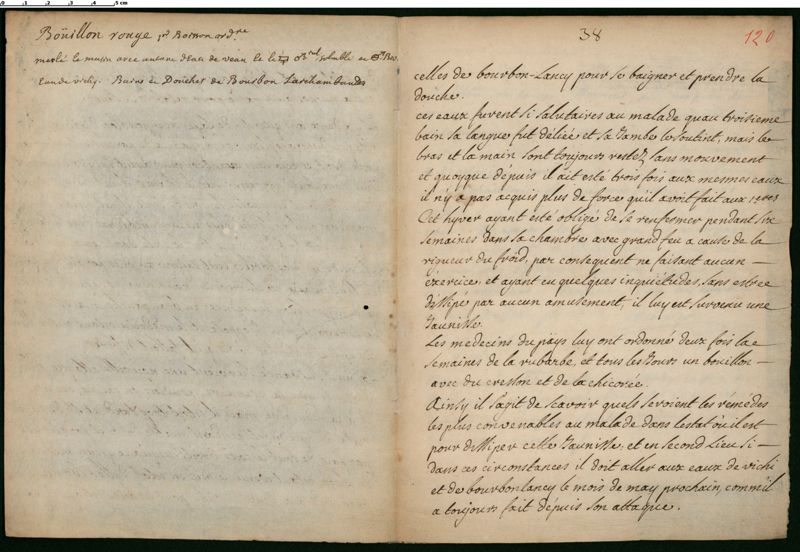 Boüillon rouge pr Boisson ordre
meslé le matin avec autant d'eau de veau le
Eau de vichy. Bains et Douches de Bourbon Larchambauds
38
120
celles de bourbon-Lancy pour se baigner et prendre la
douche.
ces eaux furent si salutaires au malade quau troisieme
bain sa langue fut déliée et sa Jambe le soutint, mais le
bras et la main sont toujours restez sans mouvement
et quoyque depuis il ait esté trois fois aux mesmes eaux
il n'y a pas acquis plus de force qu'il avoit fait aux 1eres
Cet hyver ayant esté obligé de se renfermer pendant six
semaines dans sa chambre avec grand feu a cause de la
rigueur du froid, par consequent ne faisant aucun -
exercice, et ayant eu quelques inquiétudes, sans estre
dissipé par aucun amusement, il luy est survenu une
Jaunisse.
Les medecins du païs luy ont ordonné deux fois la
semaines de la rubarbe, et tous les Jours un bouillon -
avec du cresson et de la chicorée.
Ainsy il sagit de scavoir quels seroient les rémedes
les plus convenables au malade dans lestat où il est
pour dissiper cette Jaunisse, et en second Lieu si -
dans ces circonstances il doit aller aux eaux de vichi
et de bourbonlancy le mois de may prochain, comm'il
a toujours fait depuis son attaque.